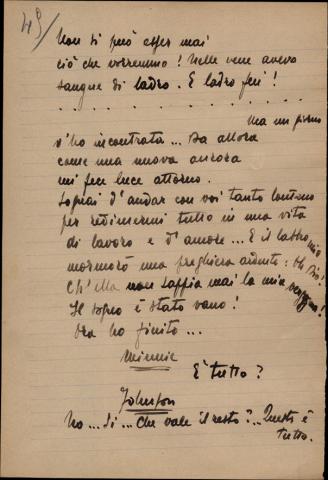 49/
Non si può esser mai
ciò che vorremmo! Nelle vene avevo
sangue di ladro. E ladro fui!
. . . . . . . . . . . . . . . .
Ma un giorno
v'ho incontrata... Da allora
come una nuova aurora
mi fece luce attorno.
Sognai d'andar con voi tanto lontano
per redimermi tutto in una vita
di lavoro e d'amore... E il labbro mio
mormorò una preghiera ardente: Oh Dio!
Ch'ella non sappia mai la mia vergogna!
Il sogno è stato vano!
Ora ho finito...
Minnie
È tutto?
Johnson
No... Sì... che vale il resto?.. Questo è
tutto.